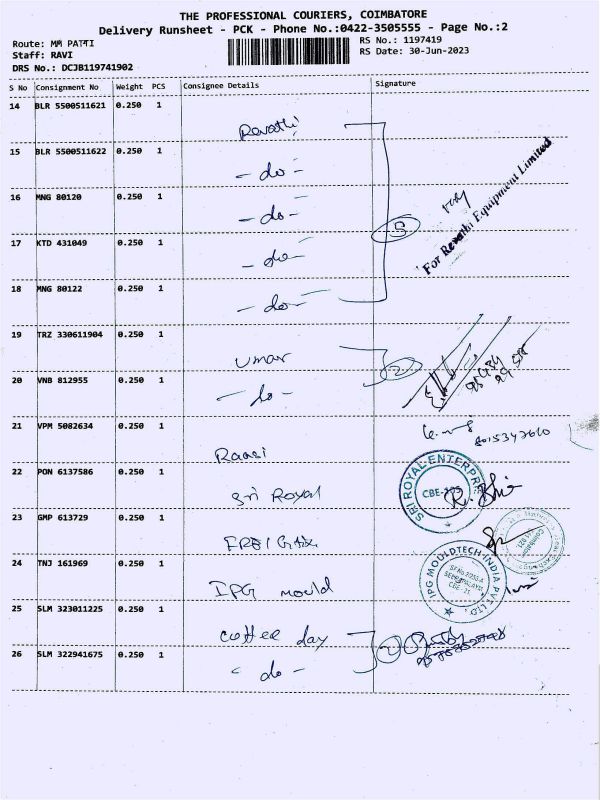 THE PROFESSIONAL COURIERS, COIMBATORE
Delivery Runsheet - PCK - Phone No.:0422-3505555 - Page No.:2
Route: MM PATTI
RS No.: 1197419
Staff: RAVI
RS Date: 30-Jun-2023
DRS No.: DCJB119741902
S No Consignment No Weight PCS Consignee Details Signature
14 BLR 5500511621 0.250 1
Revathi
15 BLR 5500511622 0.250 1
- do -
16 MNG 80120 0.250 1
- do -
17 KTD 431049 0.250 1
- do -
5
For Revathi Equipment Limited
18 MNG 80122 0.250 1
- do -
19 TRZ 330611904 0.250 1
Umar
2
20 VNB 812955 0.250 1
- do -
21 VPM 5082634 0.250 1
Raasi
22 PON 6137586 0.250 1
Sri Royal
SRI ROYAL ENTERPR
CBE
23 GMP 613729 0.250 1
24 TNJ 161969 0.250 1
IPG mould
IPG MOULDTECH INDIA PVT LTD
CBE - 21
25 SLM 323011225 0.250 1
coffee day
2
26 SLM 322941675 0.250 1
- do -